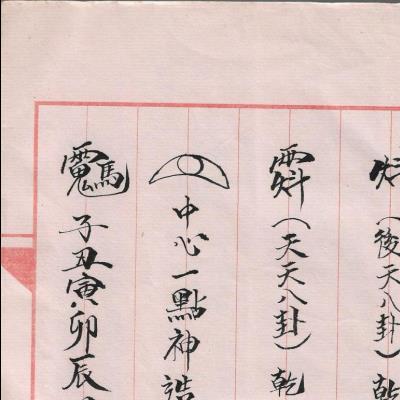 (後天八卦)乾
(天天八卦)乾
中心一點神
子丑寅卯辰